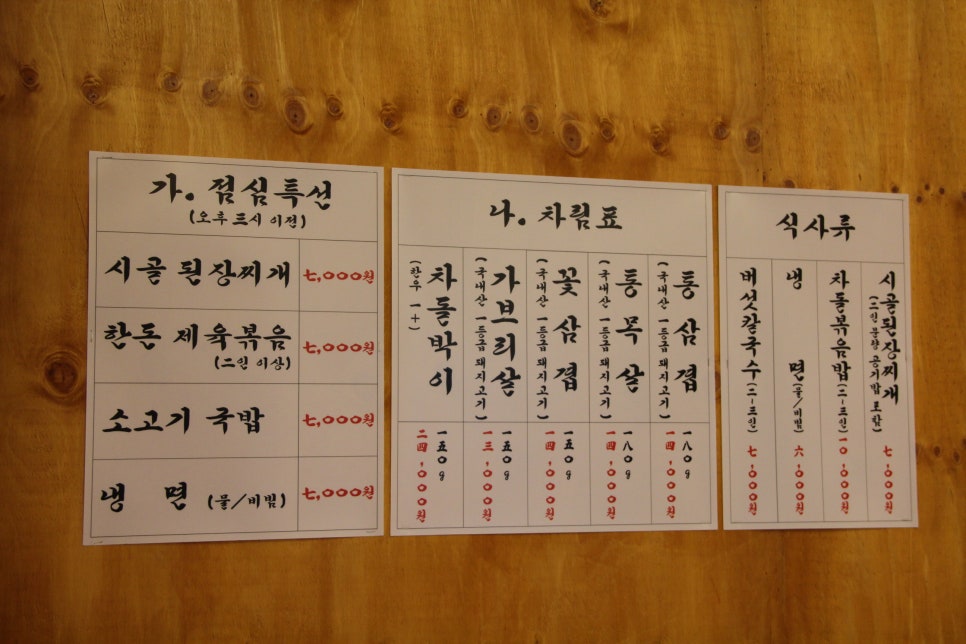 가. 점심특선
(오후 三시 이전)
시골 된장찌개 七,000원
한돈 제육볶음 七,000원
(二인 이상)
소고기 국밥 七,000원
냉 면 (물/비빔) 七,000원
나. 차림표
통삼겹 一八0g
(국내산 一등급 돼지고기) 一四,000원
통목살 一八0g
(국내산 一등급 돼지고기) 一四,000원
꽃삼겹 一五0g
(국내산 一등급 돼지고기) 一四,000원
가브리살 一五0g
(국내산 一등급 돼지고기) 一三,000원
차돌박이 一五0g
(한우 一+) 二四,000원
식사류
시골된장찌개 七,000원
(二인분량 공기밥 포함)
차돌볶음밥(二~三인) 一0,000원
냉 면(물/비빔) 六,000원
버섯칼국수(二~三인) 七,000원